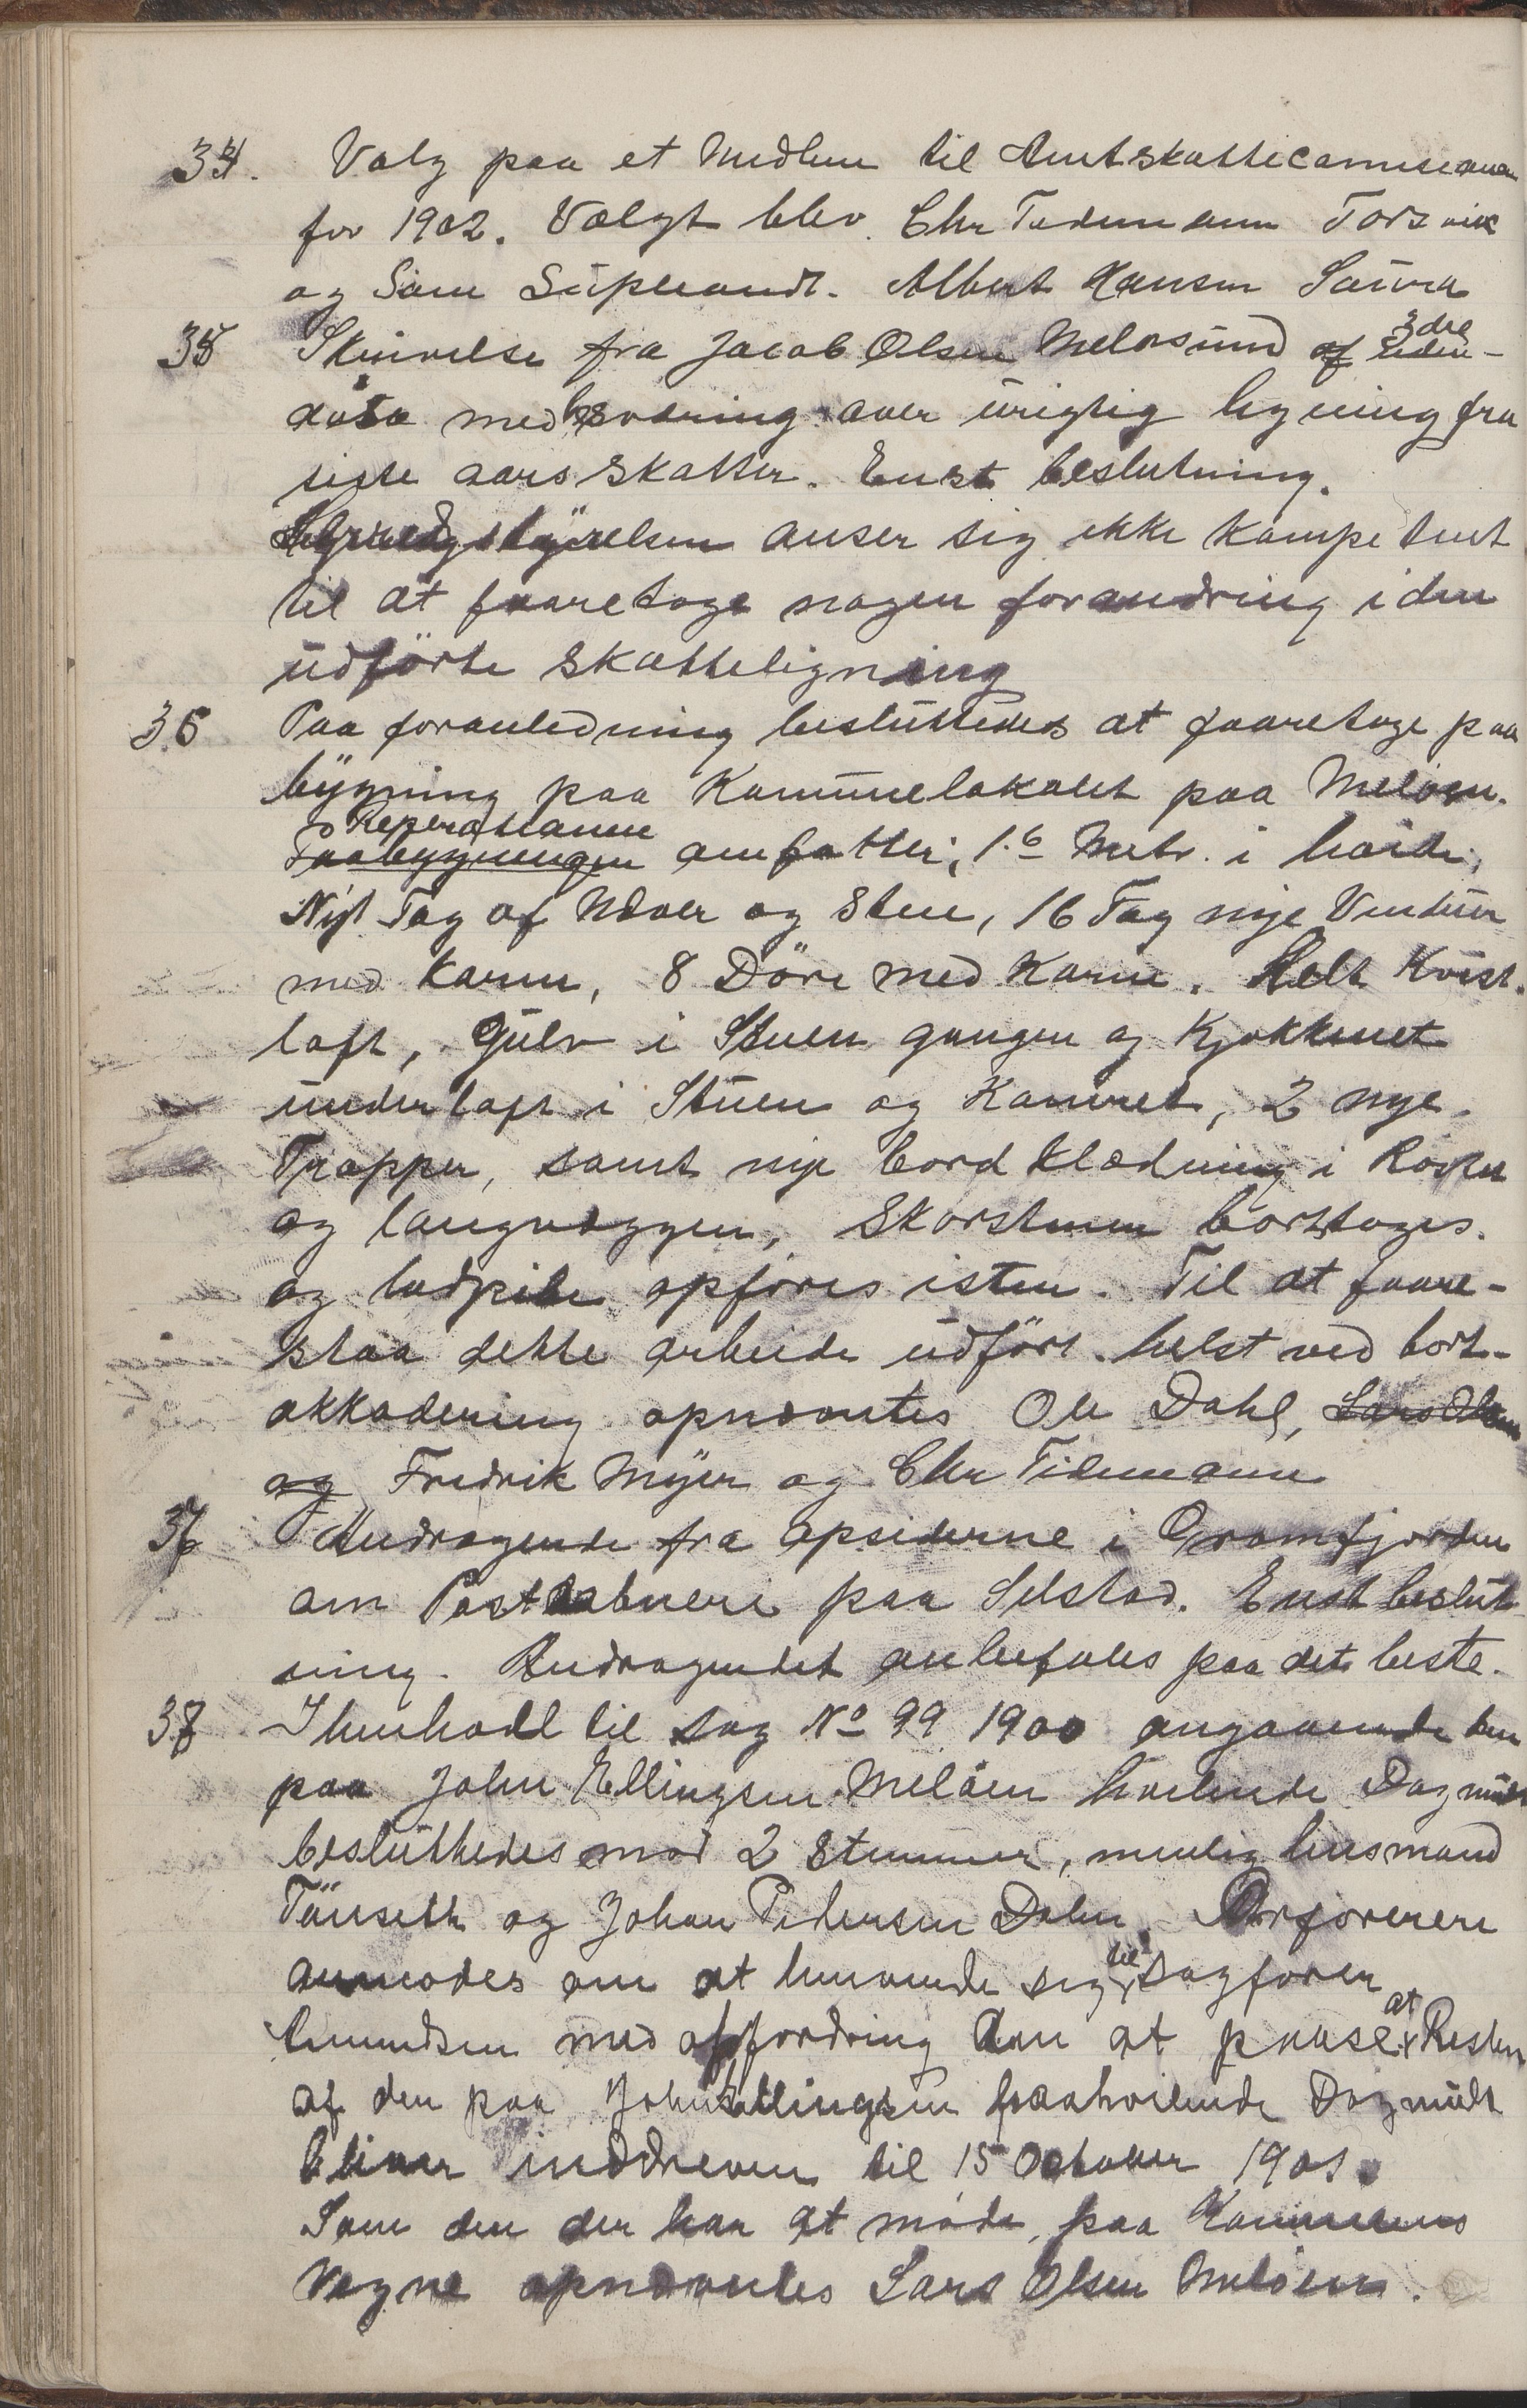 34. Valg paa et Medlem til Amtskattecommisionen
for 1902. Valgt blev Chr Tidemann Torsvik
og Som Supleandt. Albert Hansen Saura
35 Skrivelse fra Jacob Olsen Meløsund af 3die
dato med besværing over urigtig ligning fra
siste aars skatter. Enst beslutning.
Herredsstyrelsen anser sig ikke kompetent
til at foaretage nogen forandring i den
udförte skatteligning
36 Paa foranledning besluttedes at foaretage paa
bygning paa Kommunelokalet paa Meløen.
Reperationene
Paabygningen omfatter; 1.6 Metr. i høide,
Nyt Tag af Næver og Sten, 16 Fag nye Vinduer
med karm, 8 Döre med Karme. Helt Kvist
loft, Gulv i Stuen gangen og Kjøkkenet
underloft i Stuen og Kamret, 2 nye
Trapper, samt nye bord klædning i Røstet
og langvæggen, Skorstenen borttages
og lodpibe opføres isten. Til at foare-
staa dette arbeide udført helst ved bort-
akkodering opnævntes Ole Dahl, Lars Olsen
og Fredrik Myer og Chr Tidemann
37 Andragende fra opsiderne i Glomfjorden
om Postaabneri paa Selstad. Enst beslut
ning. Andragendet anbefales paa det beste.
38 I henhold til sag No 99 1900 angaaende den
paa John Ellingsen Meløen hvilende Dagmult
besluttedes mod 2 Stemmer, nemlig husmand
Tönseth og Johan Pedersen Dalen. Orføreren
anmodes om at henvende sig til Sagfører
Amundsen med opfordring om at paase at Resten
af den paa John Ellingsen paahvilende Dagmult
bliver inddreven til 15 October 1901.
Som den der har at møde paa Kommunens
Vegne opnævntes Lars Olsen Meløen.